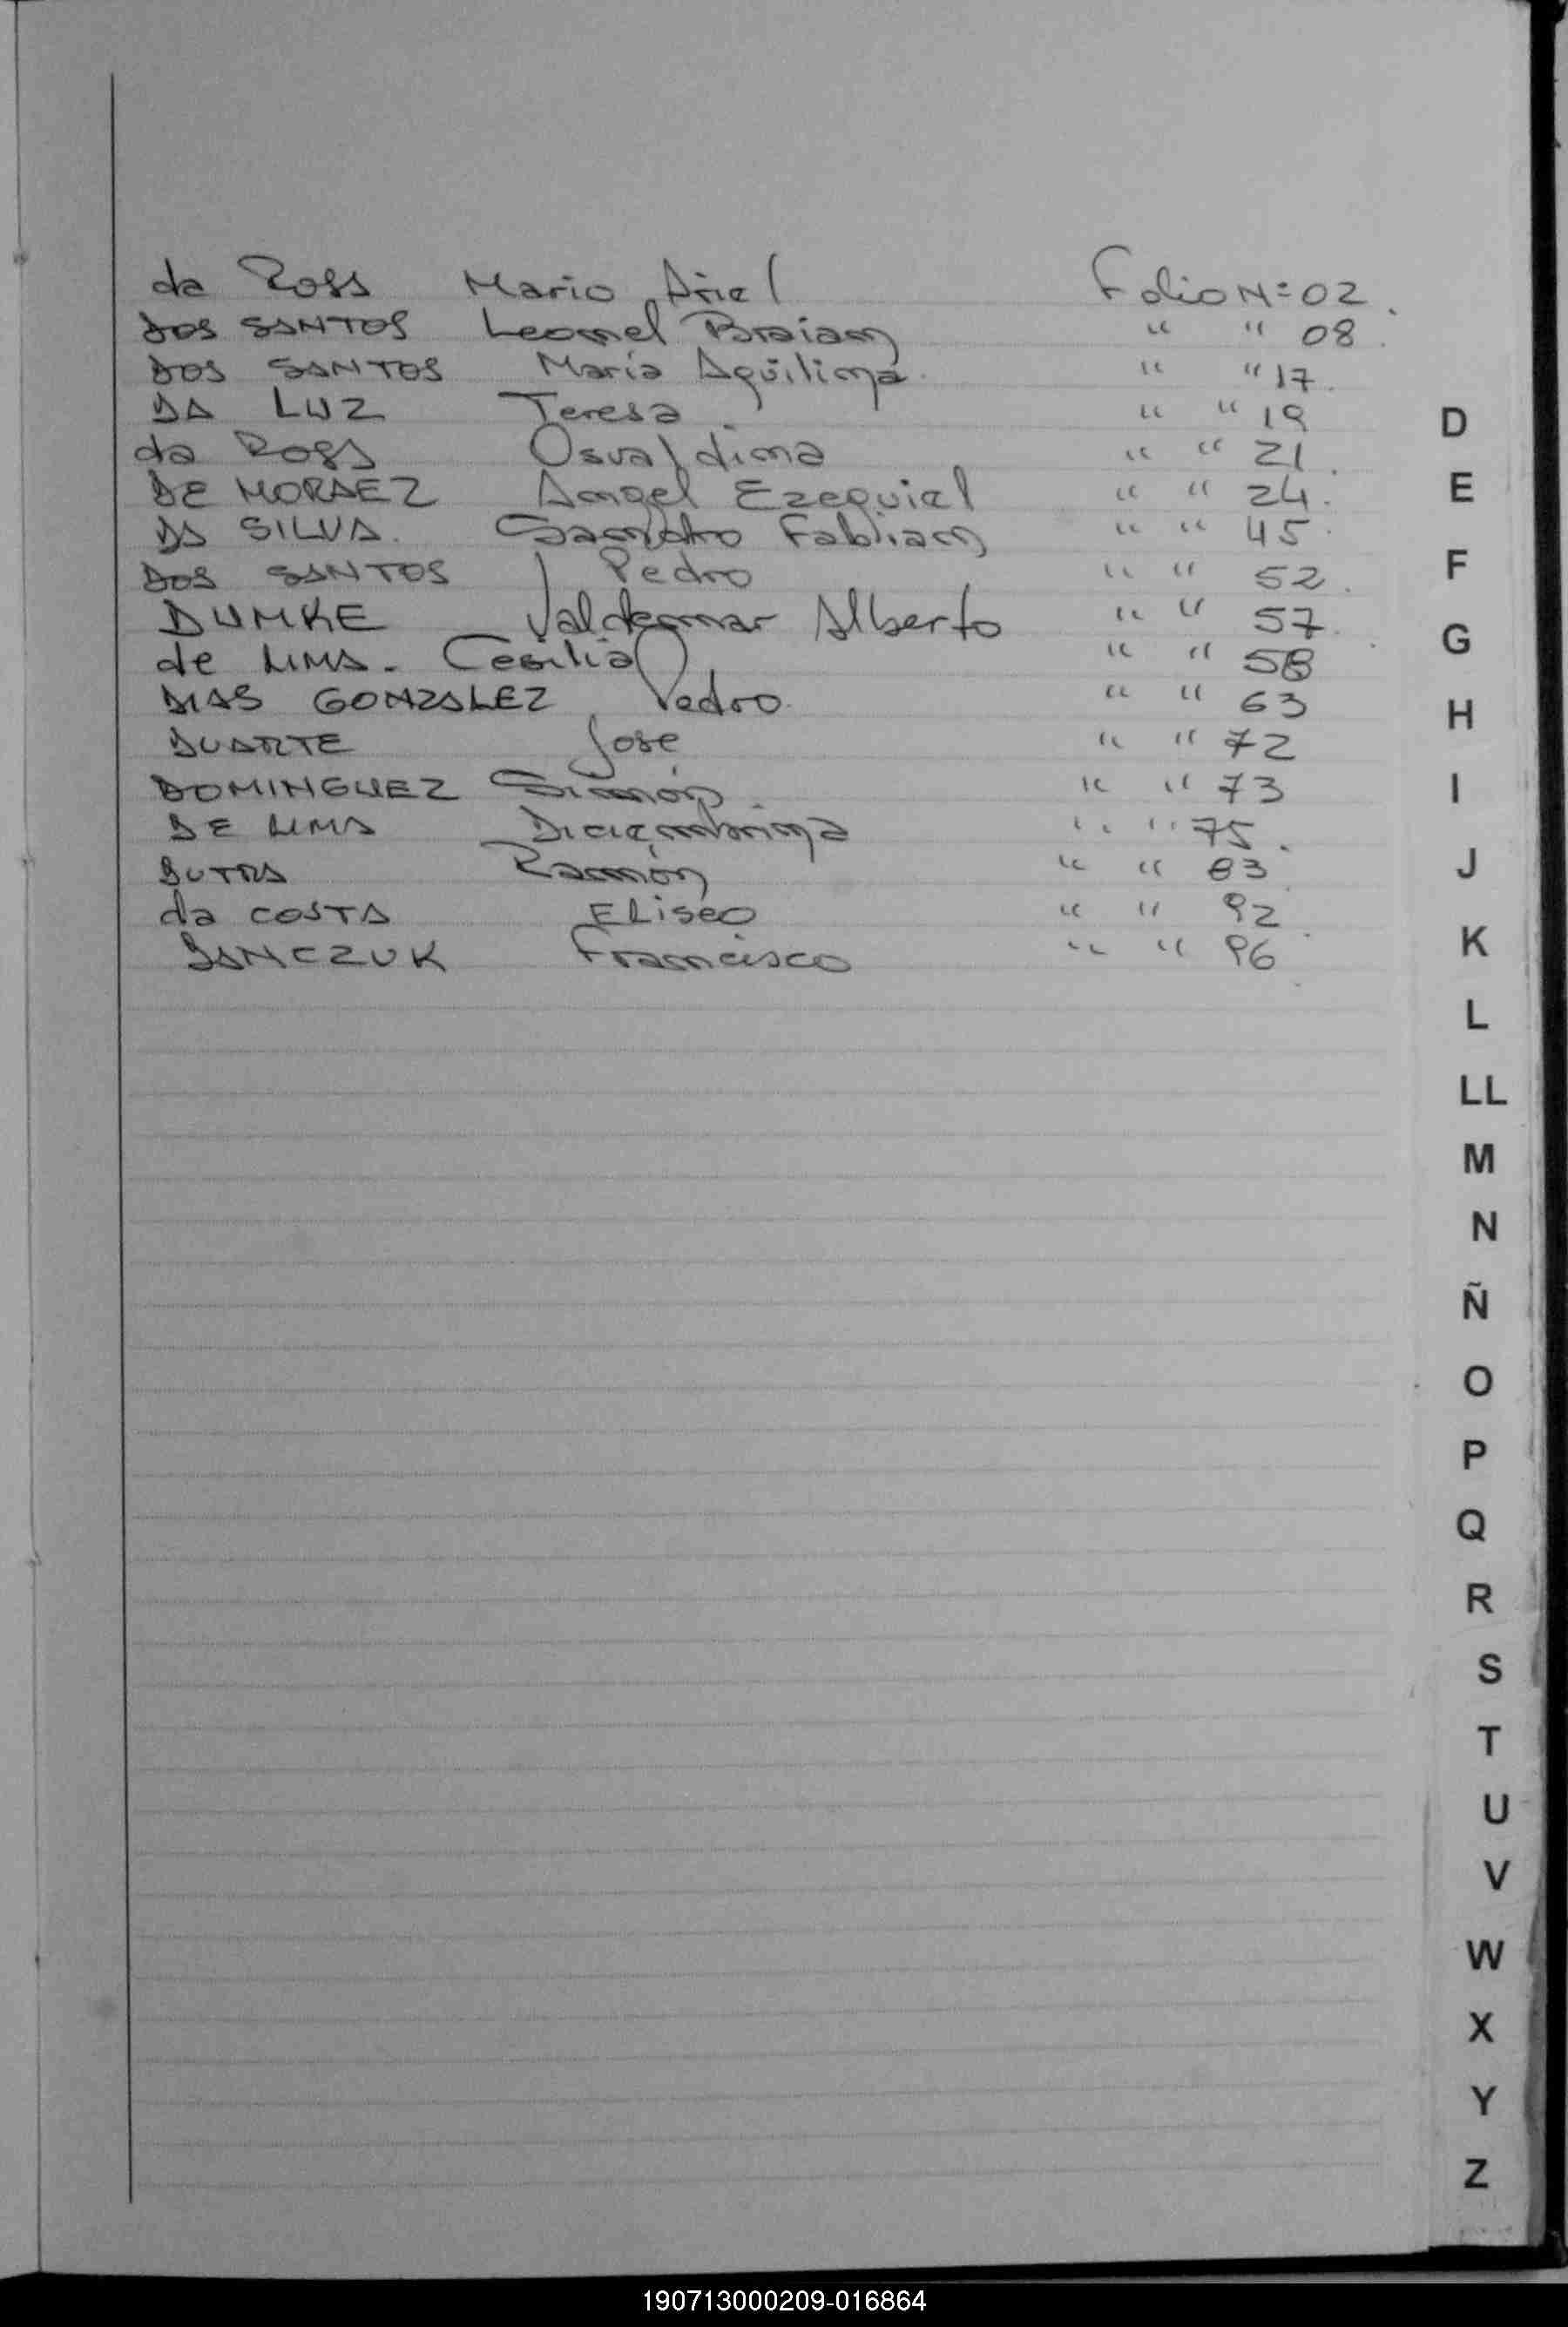 da Rosa Mario Ariel Folio Nº 02.
DOS SANTOS Leonel Braian " " 08.
DOS SANTOS María Aquilina. " " 17.
DA LUZ Teresa " " 19
da Rosa Osvaldina " " 21.
DE MORAEZ Angel Ezequiel " " 24.
DA SILVA. Sandro Fabian " " 45.
DOS SANTOS Pedro " " 52.
DUMKE Valdemar Alberto " " 57.
de LIMA. Cesilia " " 58
DIAS GONZALEZ Pedro. " " 63
DUARTE José " " 72
DOMINGUEZ Simón. " " 73
DE LIMA Diciembrina " " 75.
DUTRA Ramón " " 83
da COSTA Eliseo " " 92
DANCZUK Francisco " " 96
D
E
F
G
H
I
J
K
L
LL
M
N
Ñ
O
P
Q
R
S
T
U
V
W
X
Y
Z
190713000209-016864